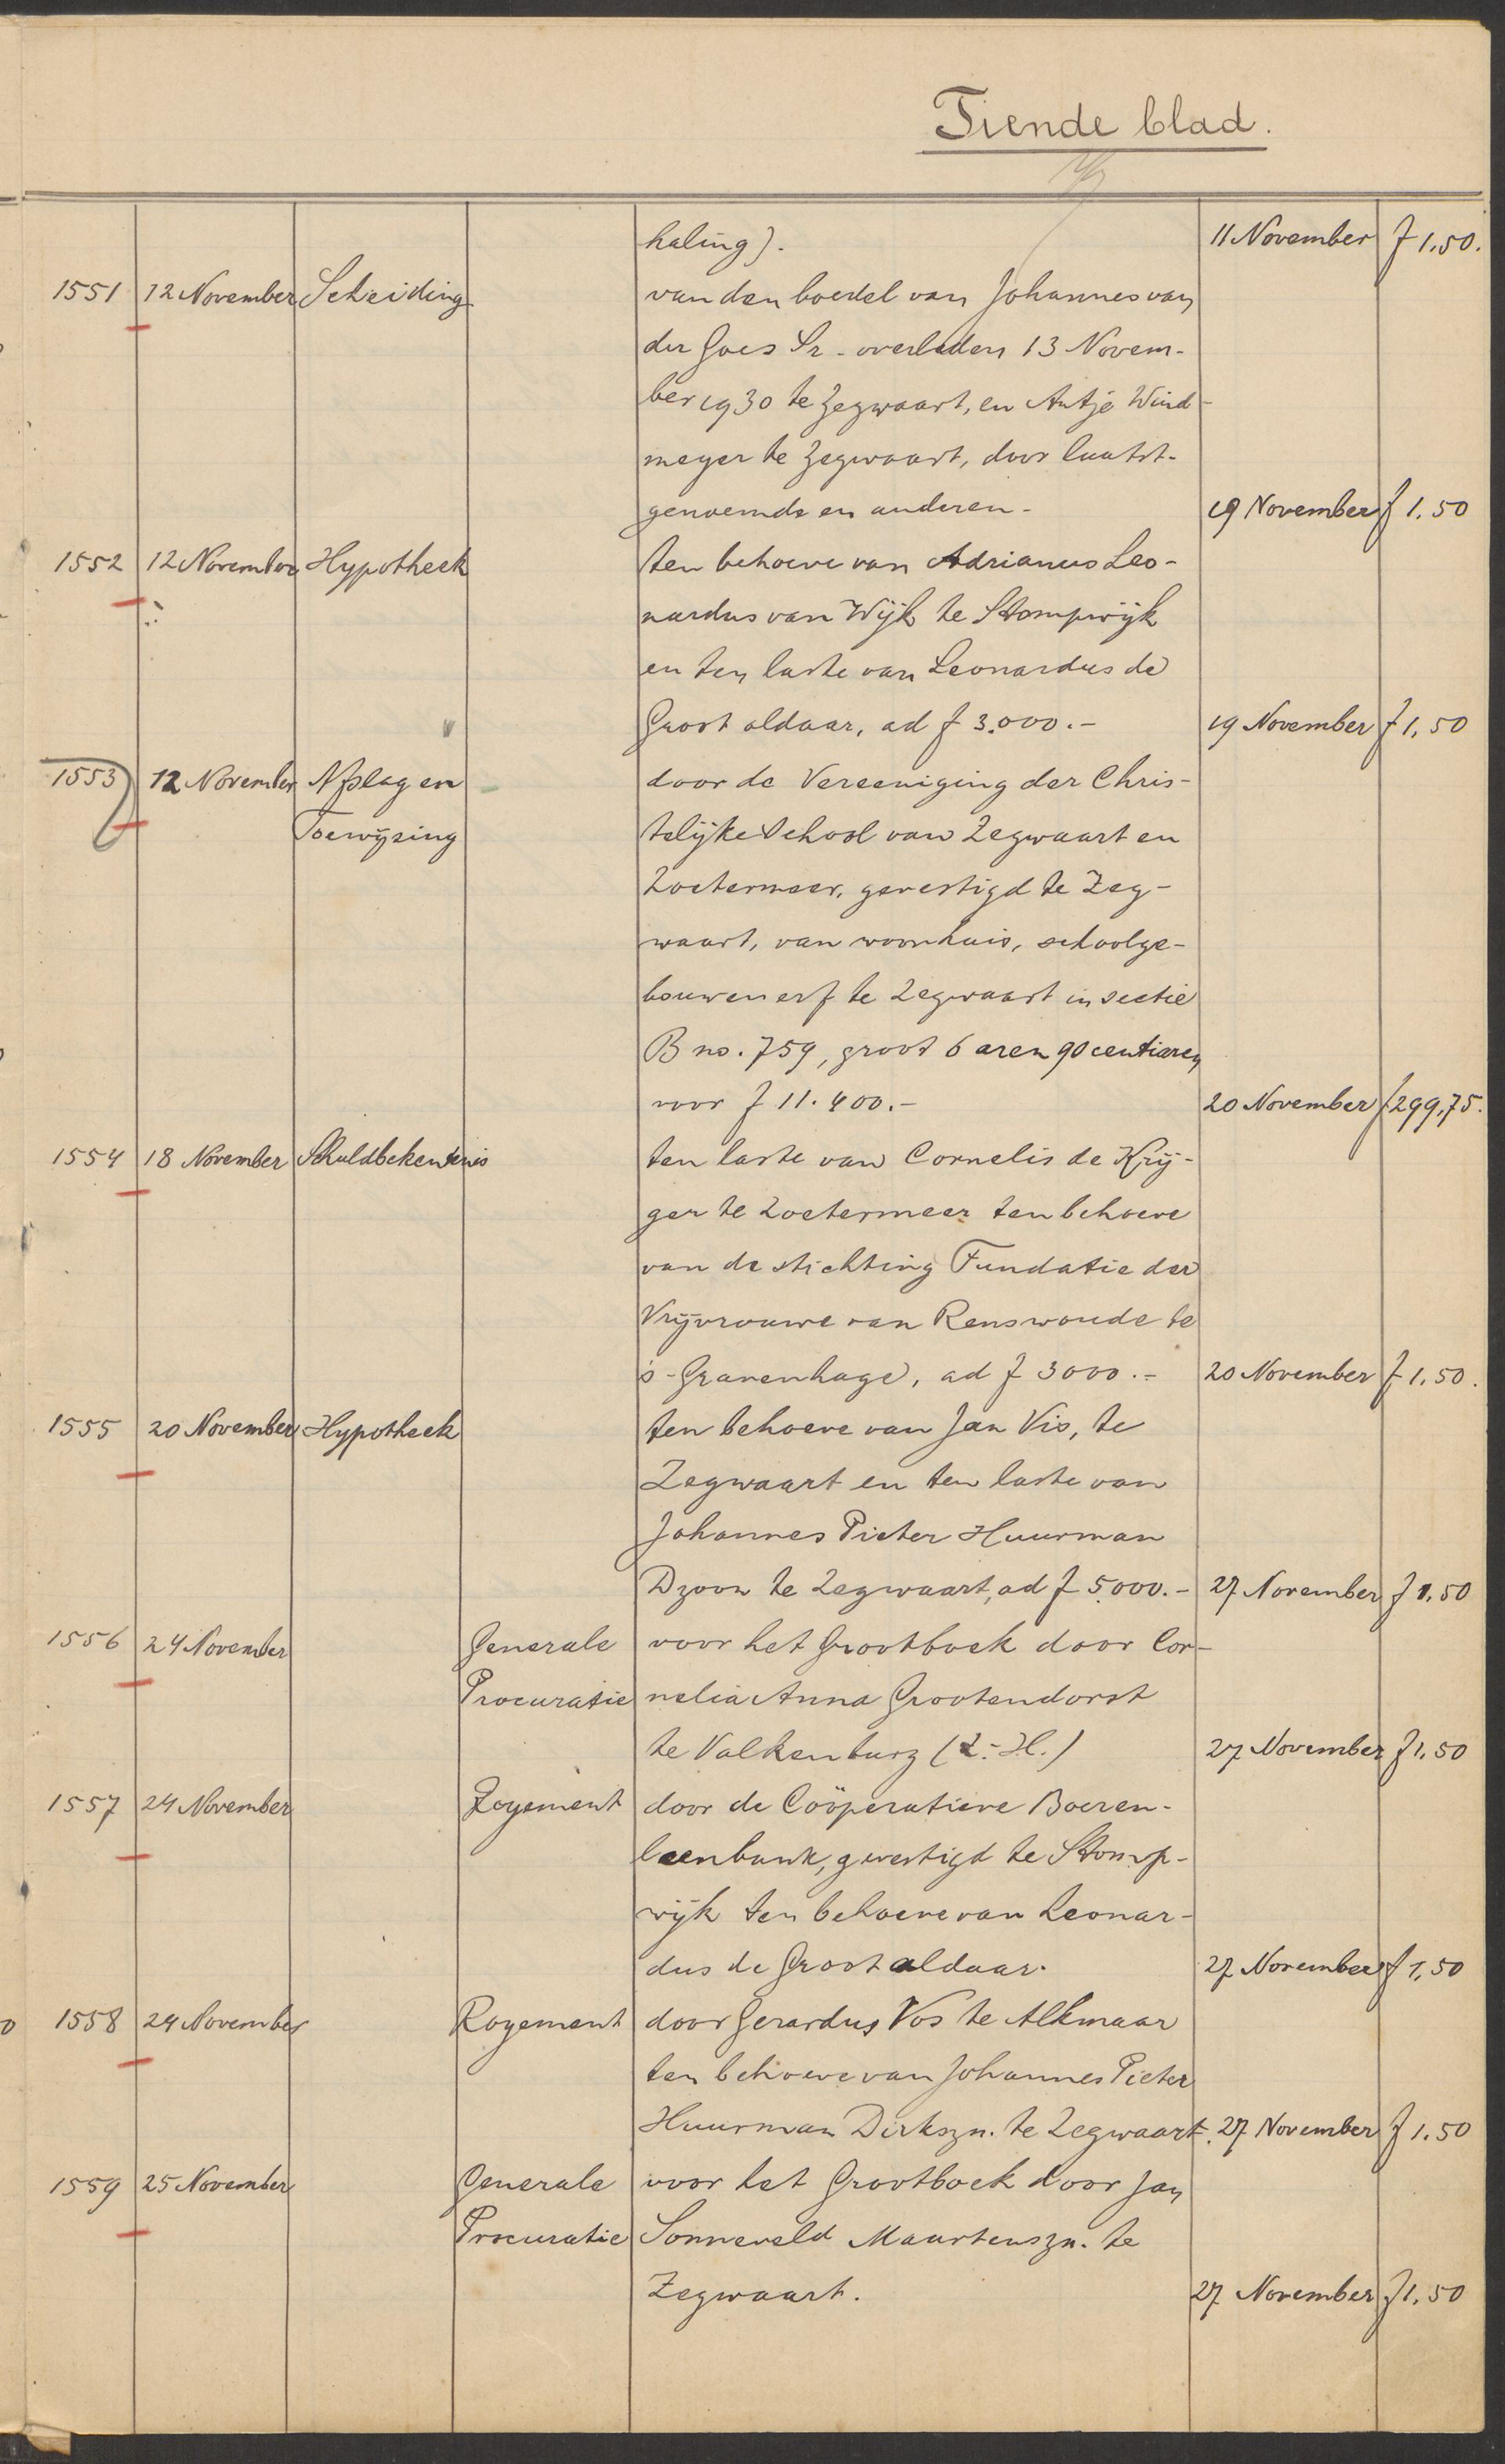 Tiende blad.
haling). 11 November f 1.50.
1551 12 November Scheiding van den boedel van Johannes van
der Goes Sr. overleden 13 Novem-
ber 1930 te Zegwaart, en Antje Wind-
meyer te Zegwaart, door laatst-
genoemde en anderen. 19 November f 1.50
1552 12 November Hypotheek ten behoeve van Adrianus Leo-
nardus van Wijk te Stompwijk
en ten laste van Leonardus de
Groot aldaar, ad f 3.000.- 19 November f 1,50
1553 12 November Afslag en door de Vereeniging der Chris-
Toewijzing telijke School van Zegwaart en
Zoetermeer, gevestigd te Zeg-
waart, van woonhuis, schoolge-
bouw en erf te Zegwaart in sectie
B no. 759, groot 6 aren 90 centiaren
voor f 11.400.- 20 November f 299,75.
1554 18 November Schuldbekentenis ten laste van Cornelis de Krij-
ger te Zoetermeer ten behoeve
van de stichting Fundatie der
Vrijvrouwe van Renswoude te
's-Gravenhage, ad f 3000.- 20 November f 1.50.
1555 20 November Hypotheek ten behoeve van Jan Vis, te
Zegwaart en ten laste van
Johannes Pieter Huurman
Dzoon te Zegwaart, ad f 5.000.- 27 November f 1.50
1556 24 November Generale voor het Grootboek door Cor-
Procuratie nelia Anna Grootendorst
te Valkenburg (Z.-H.) 27 November f 1.50
1557 24 November Royement door de Coöperatieve Boeren-
leenbank, gevestigd te Stomp-
wijk ten behoeve van Leonar-
dus de Groot aldaar. 27 November f 1,50
1558 24 November Royement door Gerardus Vos te Alkmaar
ten behoeve van Johannes Pieter
Huurman Dirkszn. te Zegwaart. 27 November f 1.50
1559 25 November Generale voor het Grootboek door Jan
Procuratie Sonneveld Maartenszn. te
Zegwaart. 27 November f 1.50